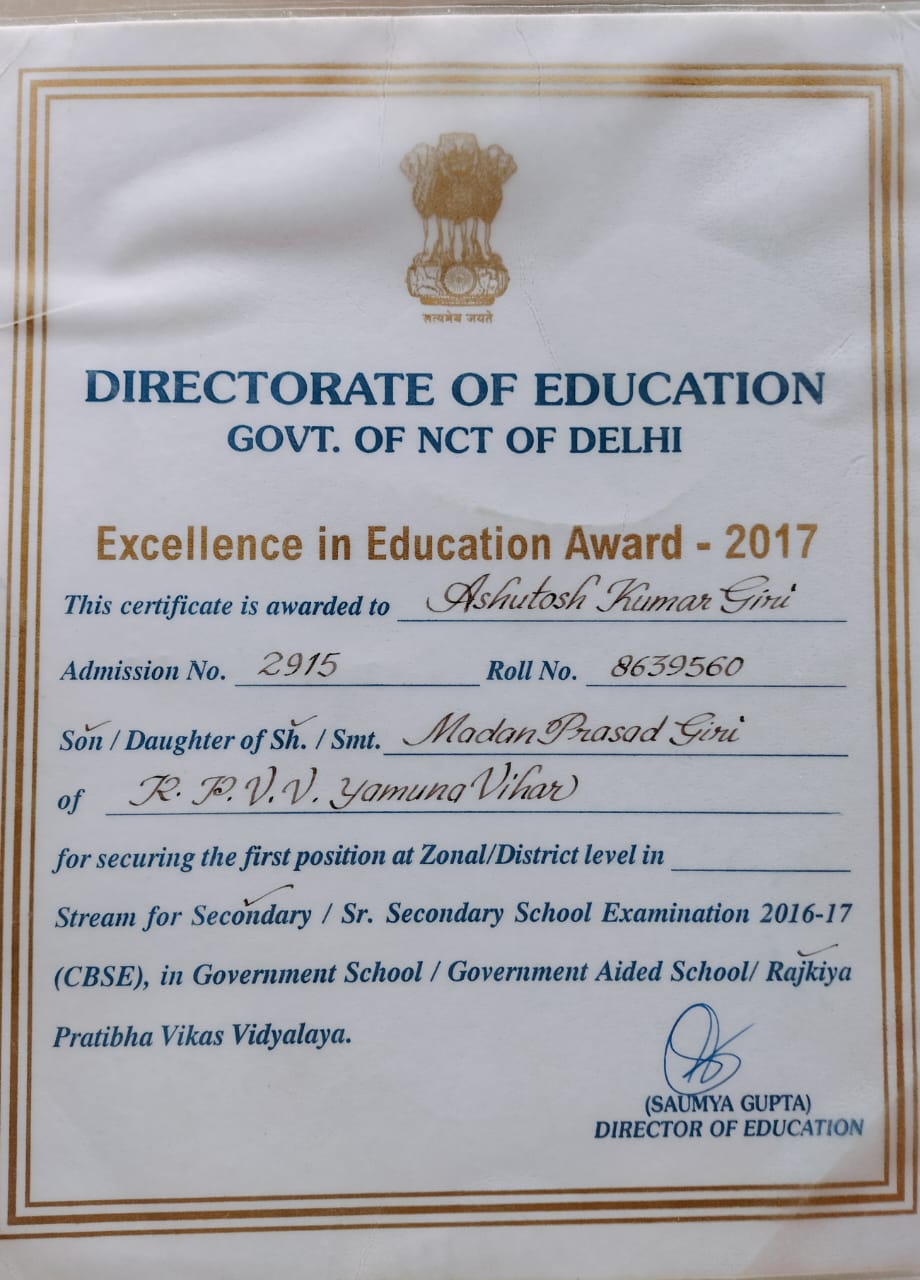 सत्यमेव जयते
DIRECTORATE OF EDUCATION
GOVT. OF NCT OF DELHI
Excellence in Education Award - 2017
This certificate is awarded to Ashutosh Kumar Giri
Admission No. 2915 Roll No. 8639560
Son / Daughter of Sh. / Smt. Madan Prasad Giri
of R. P. V. V. Yamuna Vihar
for securing the first position at Zonal/District level in
Stream for Secondary / Sr. Secondary School Examination 2016-17
(CBSE), in Government School / Government Aided School/ Rajkiya
Pratibha Vikas Vidyalaya.
(SAUMYA GUPTA)
DIRECTOR OF EDUCATION